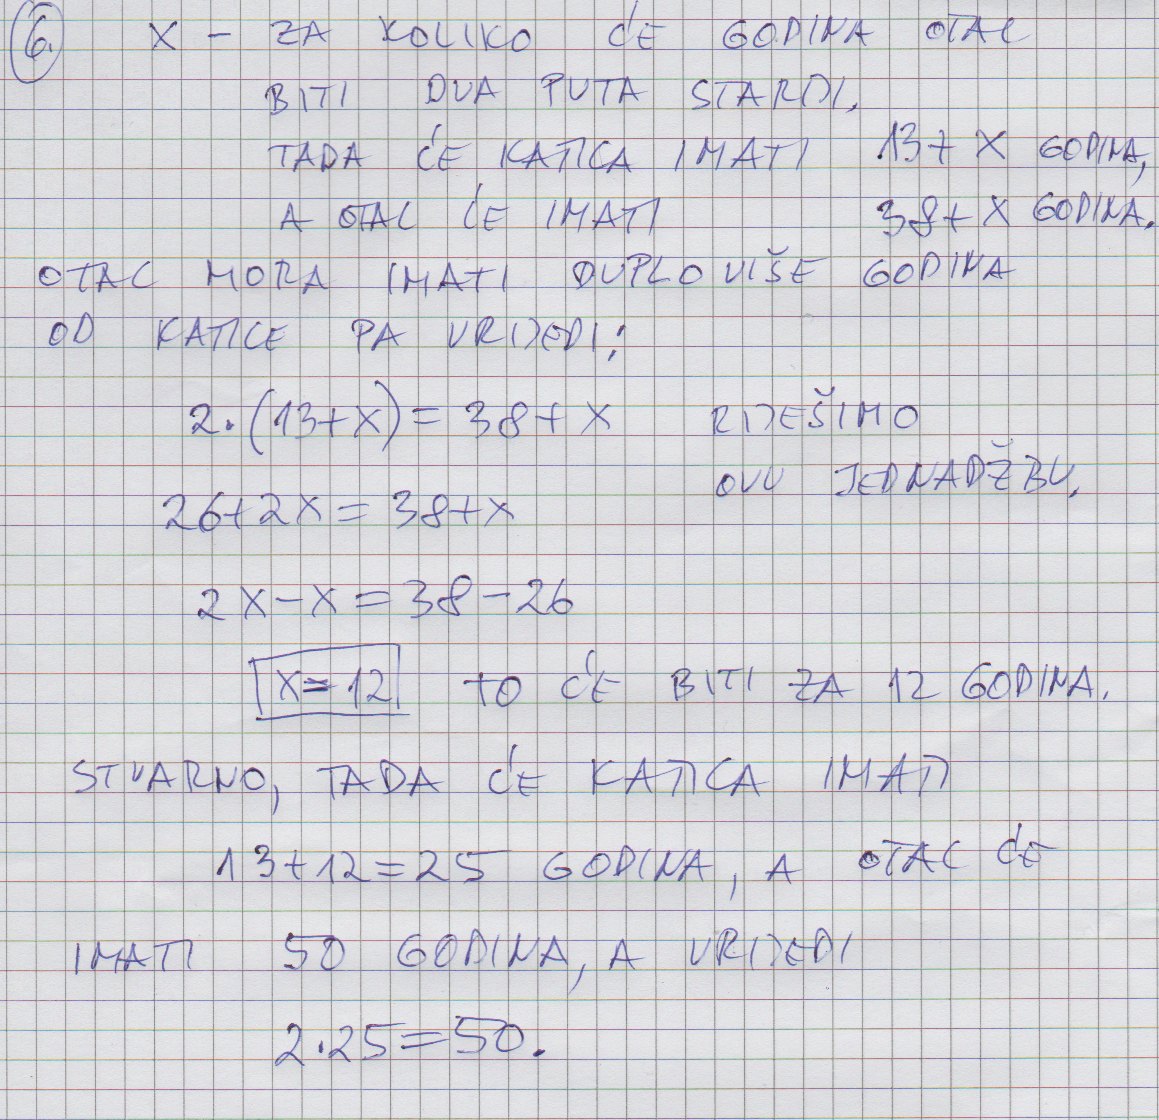 6. X - ZA KOLIKO ĆE GODINA OTAC
BITI DVA PUTA STARIJI.
TADA ĆE KATICA IMATI 13+X GODINA,
A OTAC ĆE IMATI 38+X GODINA.
OTAC MORA IMATI DUPLO VIŠE GODINA
OD KATICE PA VRIJEDI:
2·(13+X)=38+X RIJEŠIMO
OVU JEDNADŽBU.
26+2X=38+X
2X-X=38-26
X=12 TO ĆE BITI ZA 12 GODINA.
STVARNO, TADA ĆE KATICA IMATI
13+12=25 GODINA, A OTAC ĆE
IMATI 50 GODINA, A VRIJEDI
2·25=50.